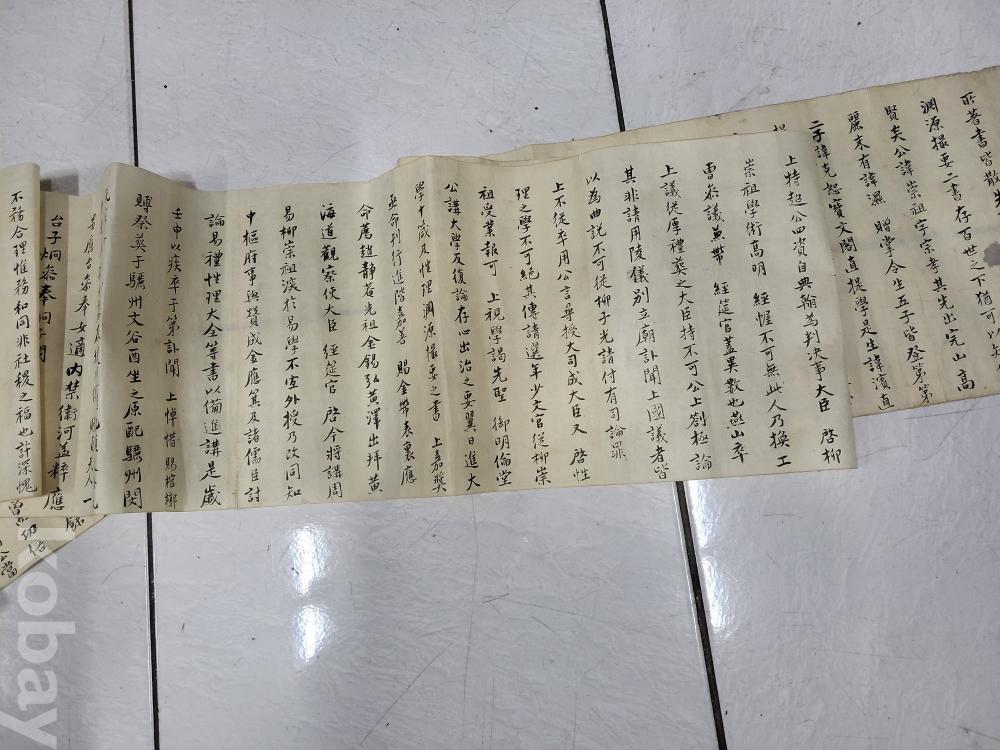 所著書皆散失
淵源撮要二書存百世之下猶可以知
賢矣公諱崇祖字宗孝其先出完山高
麗末有諱濕 贈掌令生五子皆登第第
二子諱克恕寶文閣直提學是生諱濱直
上特超公四資自典翰為判決事大臣 啓柳
崇祖學術高明 經幄不可無此人乃換工
曹叅議兼帶 經筵官蓋異數也燕山卒
上議從厚禮葬之大臣持不可公上劄極論
其非請用陵儀別立廟訃聞上國議者皆
以為曲說不可從柳子光請付有司論罪
上不從卒用公言尋授大司成大臣又 啓性
理之學不可絕其傳請選年少文官從柳崇
祖受業報可 上視學謁先聖 御明倫堂
公講大學反復論存心出治之要翼日進大
學十箴及性理淵源撮要之書 上嘉奬
亟命刊行進階嘉善 賜金帶表裏應
命薦趙靜菴光祖金錫弘黃澤出拜黃
海道觀察使大臣 經筵官 啓今將講周
易柳崇祖深於易學不宜外授乃改同知
中樞府事與贊成金應箕及諸儒臣討
論易禮性理大全等書以備進講是歲
壬申以疾卒于第訃聞 上悼惜 賜棺槨
賻祭葬于驪州文谷酉坐之原配驪州閔
台子炯叅奉
女適內禁衛河孟粹應
不務合理惟務和同非社稷之福也許深愧
kobay